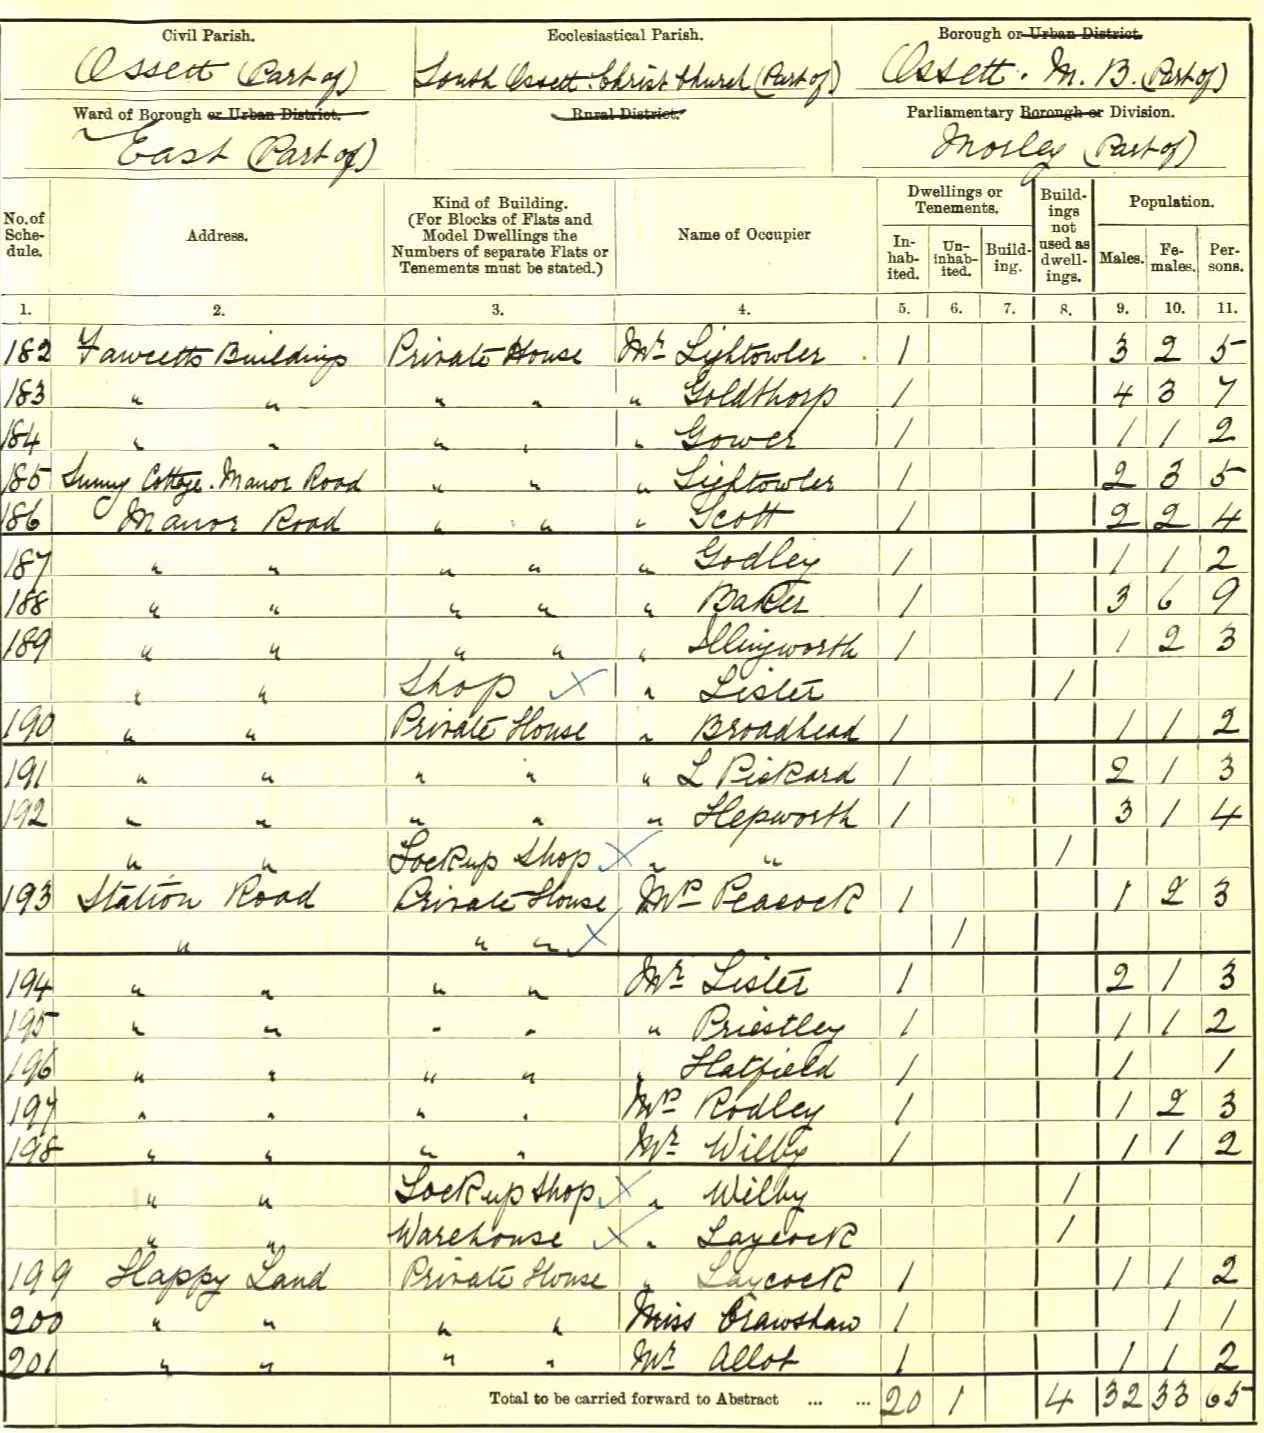 Civil Parish. Ecclesiastical Parish. Borough or Urban District.
Ossett (Part of) South Ossett. Christ Church (Part of) Ossett. M. B. (Part of)
Ward of Borough or Urban District. Rural District. Parliamentary Borough or Division.
East (Part of) Morley (Part of)
No. of Schedule. Address. Kind of Building. (For Blocks of Flats and Model Dwellings the Numbers of separate Flats or Tenements must be stated.) Name of Occupier Dwellings or Tenements. Inhabited. Uninhabited. Building. Buildings not used as dwellings. Population. Males. Females. Persons.
1. 2. 3. 4. 5. 6. 7. 8. 9. 10. 11.
182 Fawcetts Buildings Private House Mr Lightowler 1 3 2 5
183 " " " " " Goldthorp 1 4 3 7
184 " " " " " Gower 1 1 1 2
185 Sunny Cottage. Manor Road " " " Lightowler 1 2 3 5
186 Manor Road " " " Scott 1 2 2 4
187 " " " " " Godley 1 1 1 2
188 " " " " " Baker 1 3 6 9
189 " " " " " Illingworth 1 1 2 3
" " Shop X " Lister 1
190 " " Private House " Broadhead 1 1 1 2
191 " " " " " L Pickard 1 2 1 3
192 " " " " " Hepworth 1 3 1 4
" " Lockup Shop X " " 1
193 Station Road Private House Mrs Peacock 1 1 2 3
" " " X 1
194 " " " " Mr Lister 1 2 1 3
195 " " " " " Priestley 1 1 1 2
196 " " " " " Hatfield 1 1 1
197 " " " " Mrs Rodley 1 1 2 3
198 " " " " Mr Wilby 1 1 1 2
" " Lockup Shop X " Wilby 1
" " Warehouse X " Laycock 1
199 Happy Land Private House " Laycock 1 1 1 2
200 " " " " Miss Crawshaw 1 1 1
201 " " " " Mr Allot 1 1 1 2
Total to be carried forward to Abstract ... ... 20 1 4 32 33 65